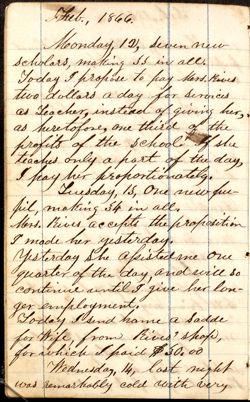 Feb., 1866.
Monday, 12, seven new
scholars, making 33 in all.
Today I propose to pay Mrs. Rives
two dollars a day for services
as Teacher, instead of giving her,
as heretofore, one third of the
profits of the school. If she
teaches only a part of the day,
I pay her proportionately.
Tuesday, 13, One new pu-
pil, making 34 in all.
Mrs. Rives accepts the proposition
I made her yesterday.
Yesterday she assisted me one
quarter of the day, and will so
continue until I give her lon-
ger employment.
Today I send home a Saddle
for Wife, from Rives' shop,
for which I paid $30.00
Wednesday, 14, last night
was remarkably cold with very